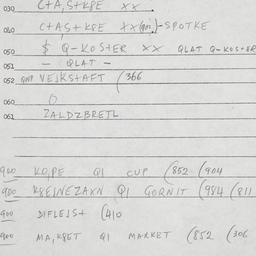 030 C+A,S+KPE XX
040 C+AS+KPE XX(pri.)-SPOTKE
050 $ Q-KOS+ER XX QLAT Q-KOS+ER
051 - QLAT -
052 VEJKS+AFT (366
060 O
061 ZALDZBRETL
900 KO,PE QI CUP (852 (904
900 K8EJNEZAXN QI GORNIT (984 (811
900 DIFLEJS+ (410
900 MA,K8ET QI MARKET (852 (306